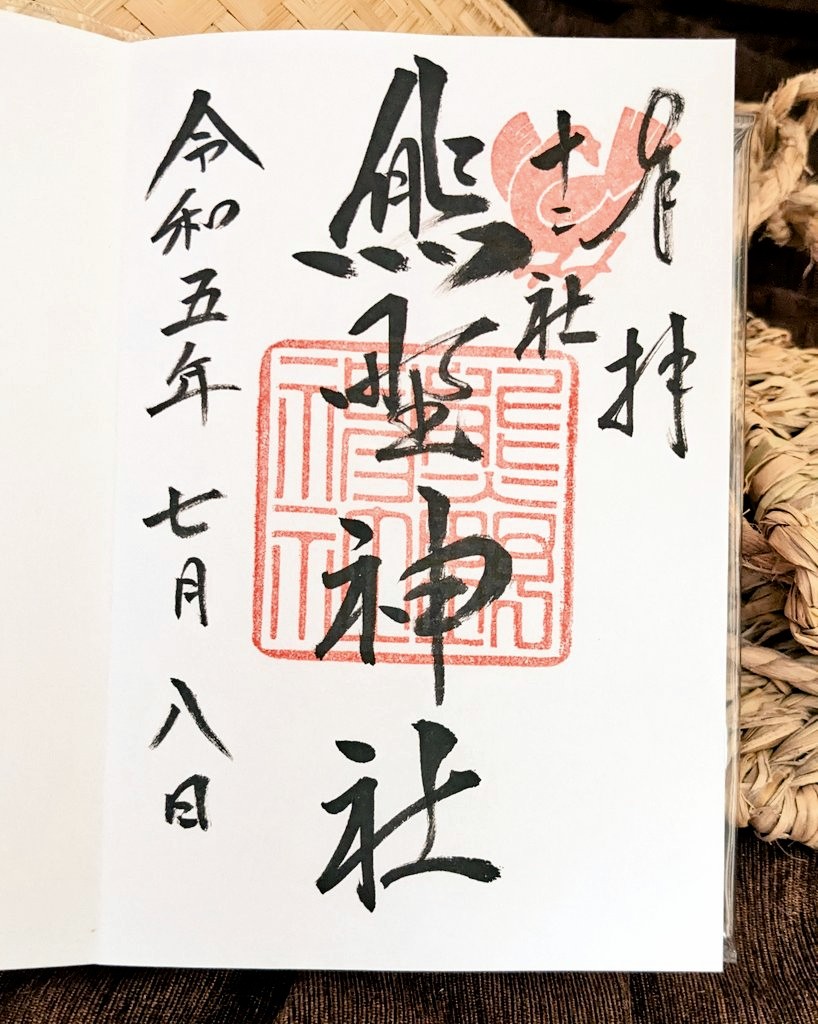 奉拝
十二社
熊野神社
令和五年七月八日